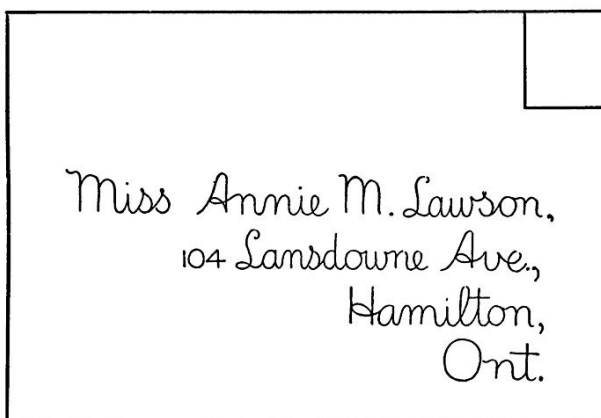 Miss Annie M. Lawson,
104 Lansdowne Ave.,
Hamilton,
Ont.